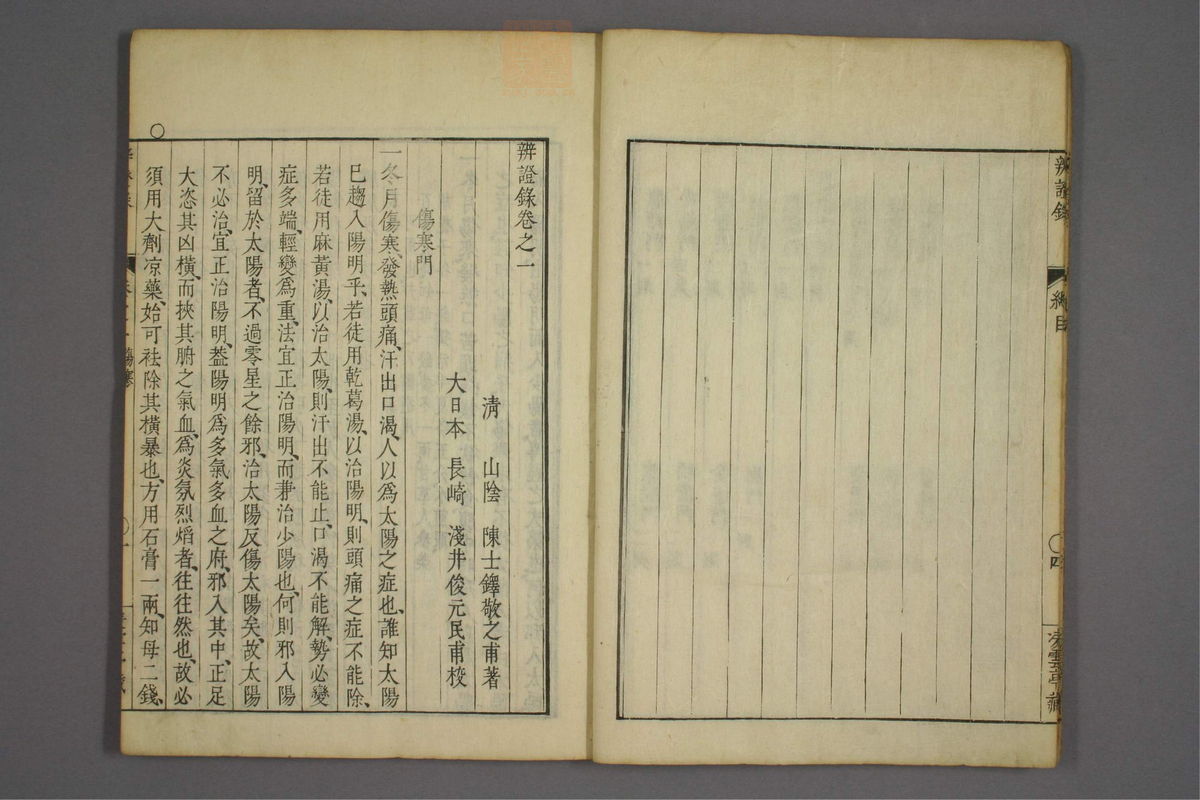 辨證錄
綱目
〇四
凌雲亭藏
辨證錄卷之一
清　山陰　陳士鐸敬之甫著
大日本　長崎　淺井俊元民甫校
傷寒門
一冬月傷寒、發熱頭痛、汗出口渴、人以爲太陽之症也、誰知太陽
巳趨入陽明乎、若徒用乾葛湯、以治陽明、則頭痛之症不能除、
若徒用麻黃湯、以治太陽、則汗出不能止、口渴不能解、勢必變
症多端、輕變爲重、法宜正治陽明、而兼治少陽也、何則邪入陽
明、留於太陽者、不過零星之餘邪、治太陽反傷太陽矣、故太陽
不必治、宜正治陽明、葢陽明爲多氣多血之府、邪入其中、正足
大恣其凶橫、而挾其腑之氣血、爲炎氛烈熖者、往往然也、故必
須用大劑凉藥、始可祛除其橫暴也、方用石膏一兩、知母二錢、
傷寒
〇一